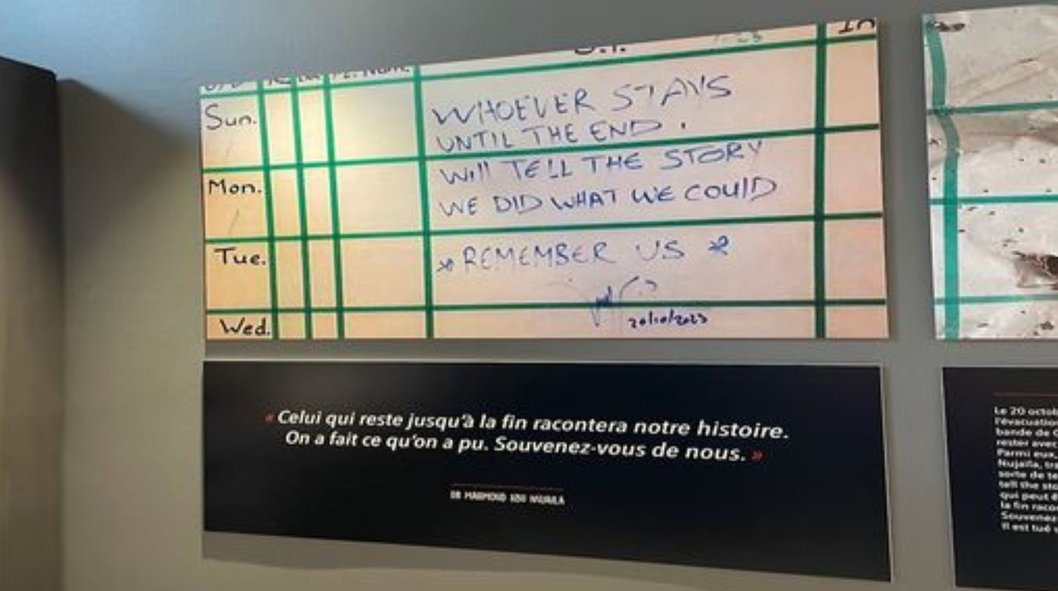 Sun.
WHOEVER STAYS
UNTIL THE END.
Mon.
Will TELL THE STORY
WE DID WHAT WE COULD
Tue.
* REMEMBER US *
20/10/2023
Wed.
« Celui qui reste jusqu'à la fin racontera notre histoire.
On a fait ce qu'on a pu. Souvenez-vous de nous. »
DR MAHMOUD ABU NUJAILA
Le 20
l'évacuation
bande de
rester avec
Parmi eux,
Nujaila,
sorte de
tell the
qui peut
la fin
Souvenez
Il est tué